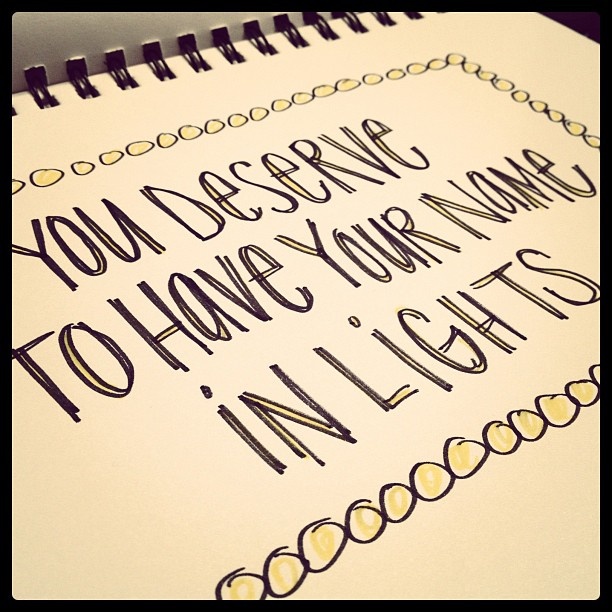 YOU DeSeRVe
TO HaVe YOUR NaMe
iN LiGHTS